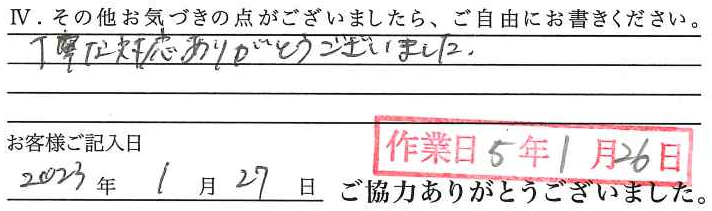 Ⅳ．その他お気づきの点がございましたら、ご自由にお書きください。
丁寧な対応ありがとうございました.
お客様ご記入日
作業日 5年1月26日
2023年 1月27日 ご協力ありがとうございました。